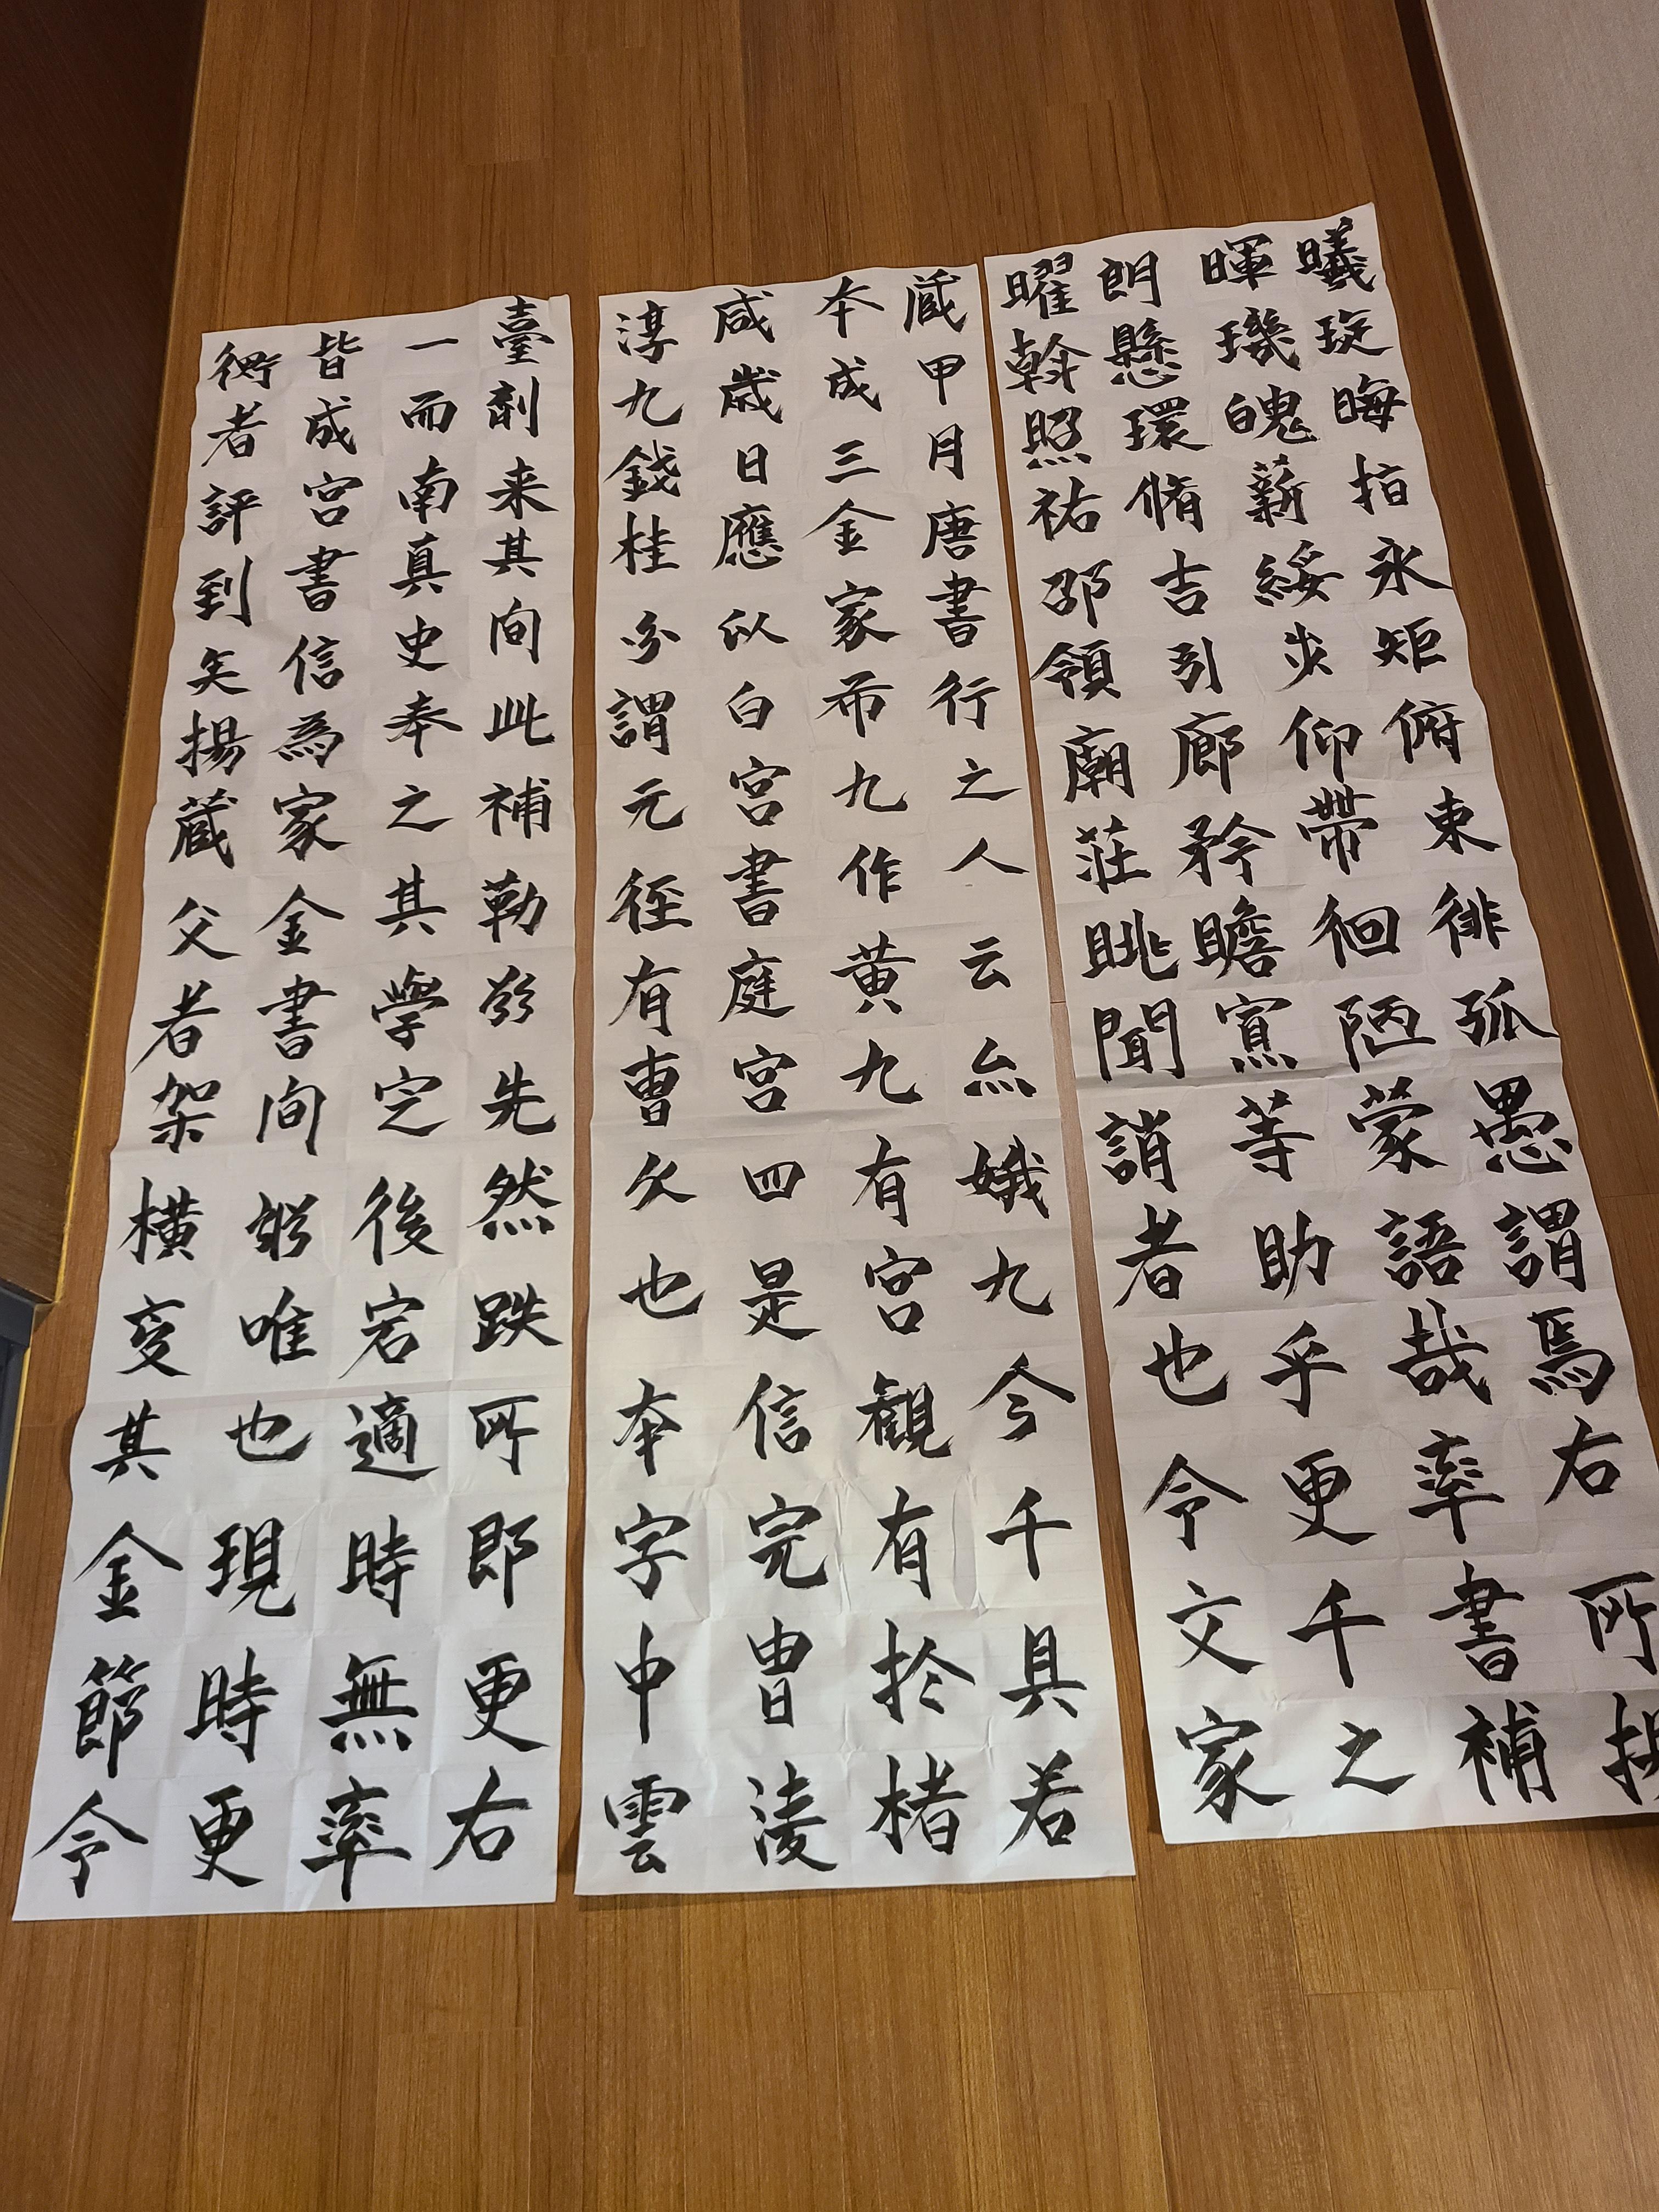 曦暉朗曜
琁璣懸斡
晦魄環照
指薪脩祐
永綏吉邵
矩步引領
俯仰廊廟
束帶矜莊
徘徊瞻眺
孤陋寡聞
愚蒙等誚
謂語助者
焉哉乎也
右率更令
所書千文
補之家
蔵本咸淳
甲成歳九
月三日錢
唐金應桂
書家以分
行布白謂
之九宮元
人作書徑
云黄庭有
九宮曹
娥有四
九宮是也
今觀信本
千有完字
具於曹中
若楮淩雲
臺一皆衡
剤而成者
来南宮評
其真書到
向史信矣
此奉為揚
補之家蔵
勒其金父
於學書者
先定向架
然後躬横
跌宕唯变
所適也其
即時現金
更無時節
右率更令